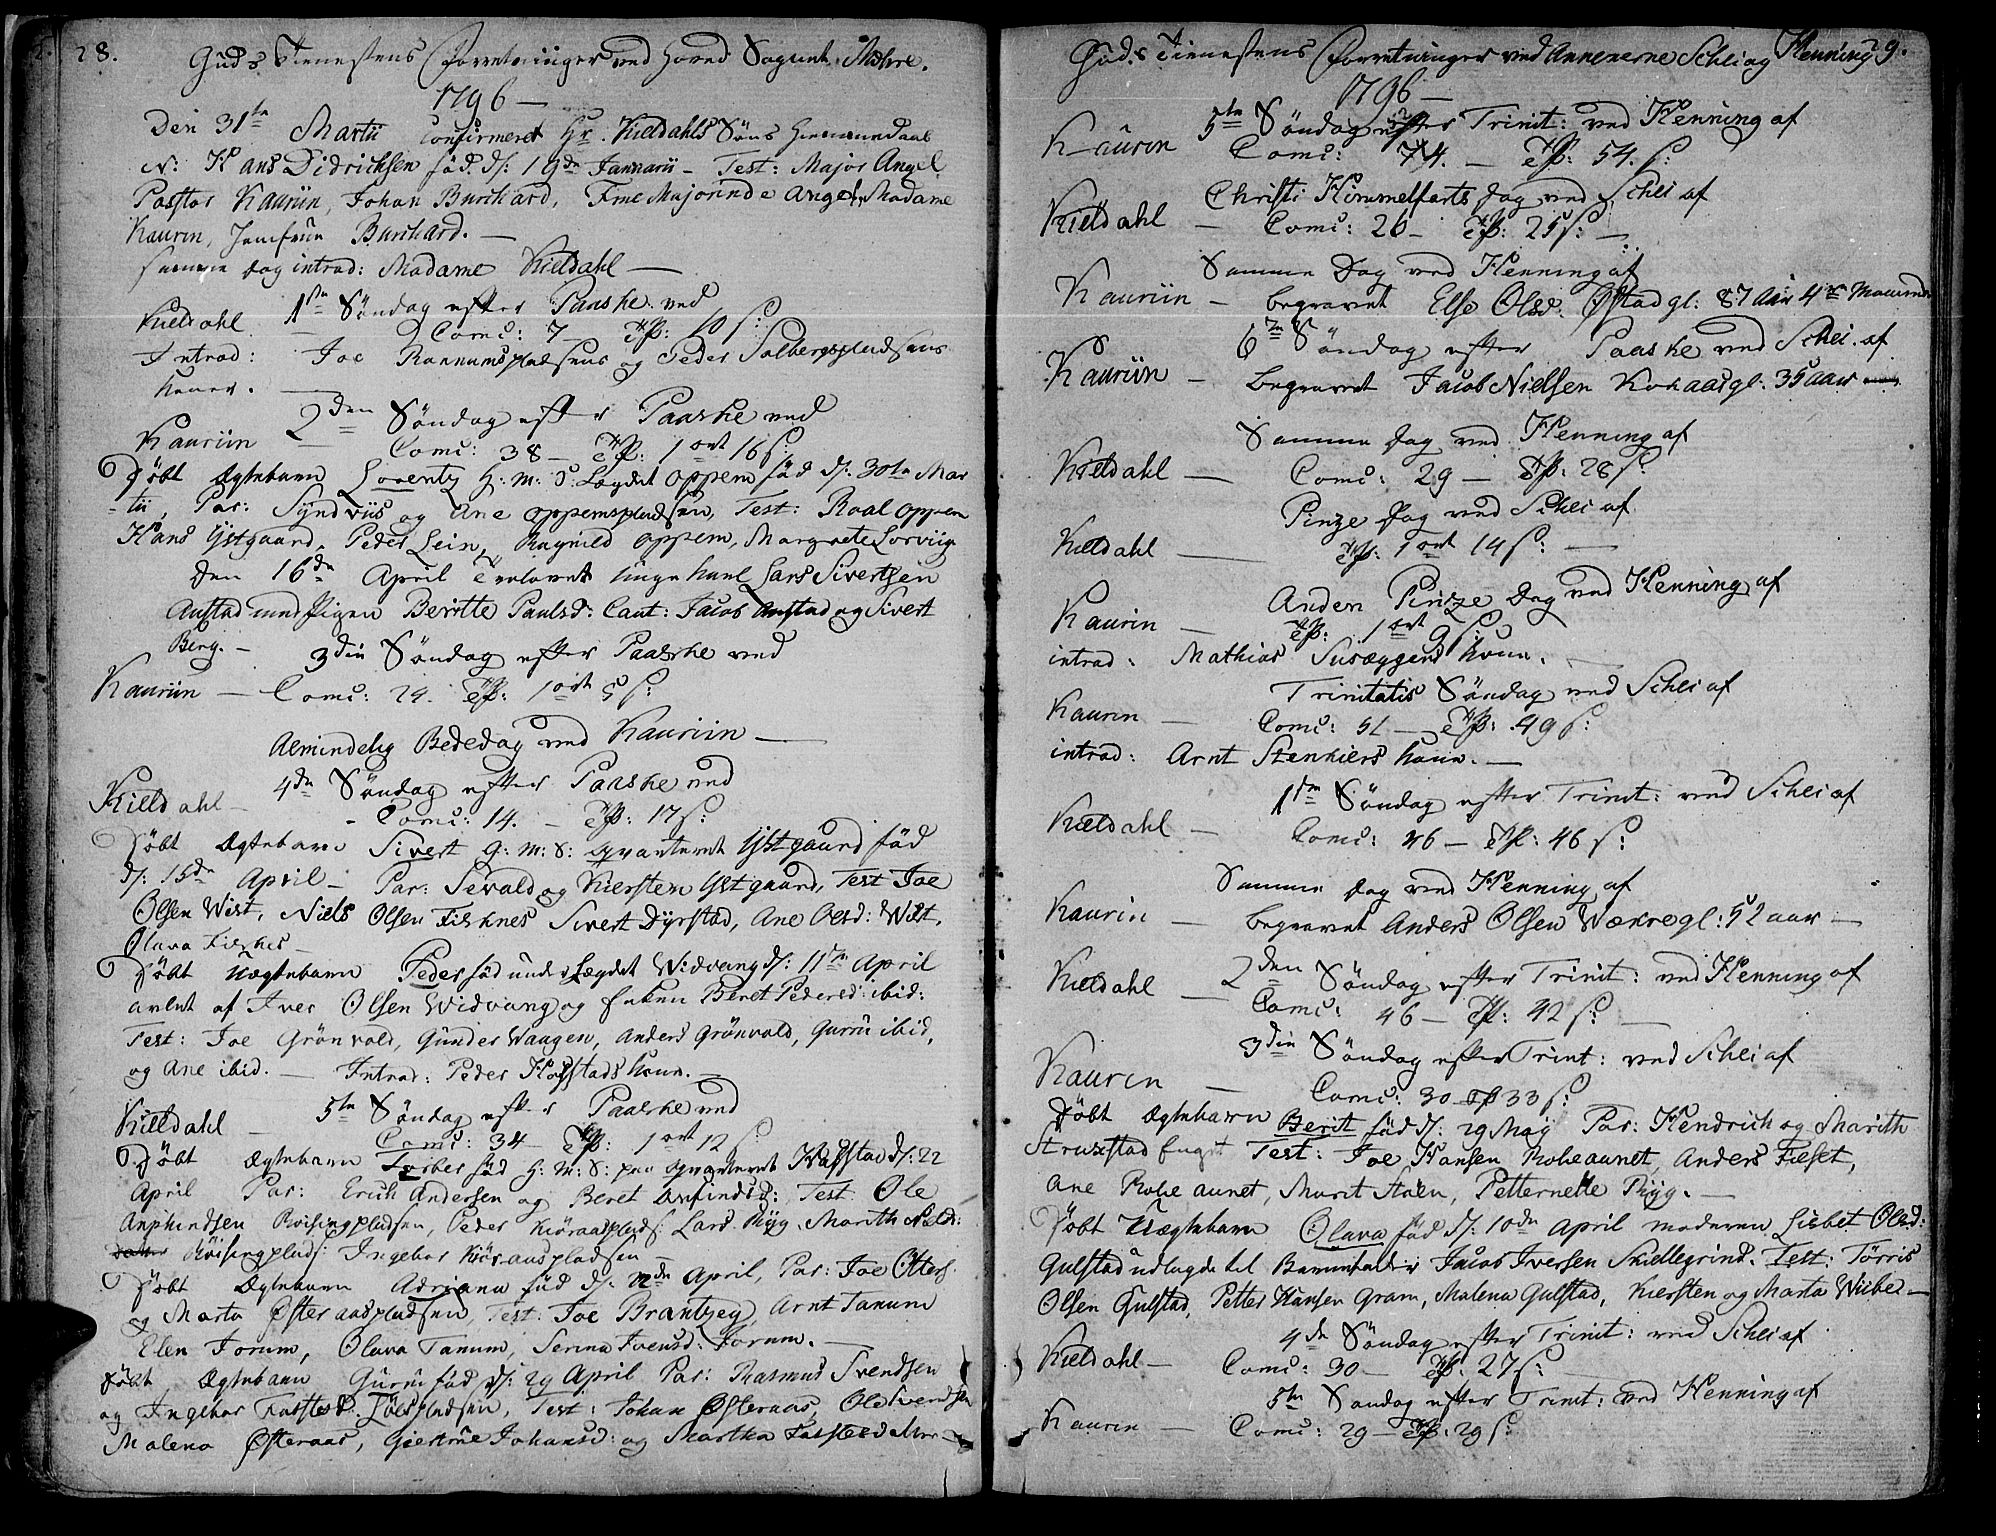 28.
Guds Tienestens Forretninger ved Hoved Sognet Mære.
1796 —
Den 31te Martii Confirmeret Hr. Kieldahls Søns Hiemmedaab
N: Hans Didrichsen fød. d: 19de Januarii — Test: Major Angel
Pastor Kauriin, Johan Burchard, Frue Majorinde Angel, Madame
Kaurin, Jomfrue Burchard. —
samme Dag introd: Madame Kieldahl —
1ste Søndag efter Paaske ved
Kieldahl — Comu: 7 — Tfl: 10 s:
Introd: Joe Rannumspladsens og Peder Solbergspladsens
koner. —
2den Søndag efter Paaske ved
Kauriin Comu: 38 — Tfl: 1 ort 16 s:
Døbt Ægtebarn Lorentz H: M: S: Lægdet Oppem fød d: 30te Mar
tii, Par: Syndviis og Ane Oppemspladsen, Test: Roal Oppem
Hans Ystgaard, Peder Lein, Ragnild Oppem, Margrete Lorviig
Den 16de April Trolovet unge karl Lars Sivertsen
Austad med Pigen Beritte Paulsd: Caut: Jacob Austad og Sivert
Berg. —
3die Søndag efter Paaske ved
Kauriin — Comu: 24. Tfl: 1 ort 5 s:
Almindelig Bededag ved Kauriin —
4de Søndag efter Paaske ved
Kieldahl — Comu: 14. — Tfl: 17 s:
Døbt Ægtebarn Sivert H: M: S: Qvarteret Ystgaard fød
d: 15de April — Par: Sevald og Kiersten Ystgaard, Test Joe
Olsen Wist, Niels Olsen Fisknes Sivert Dyrstad, Ane Olsd: Wist,
Olava Fisknes —
Døbt Uægtebarn Peder fød under Lægdet Widvang d: 11te April
avlet af Iver Olsen Widvang og Enken Beret Pedersd: ibid:
Test: Joe Grönvold, Gunder Vaagen, Anders Grönvold, Gurru ibid,
og Ane ibid. — Introd: Peder Hofstads kone. —
5te Søndag efter Paaske ved
Kieldahl — Comu: 34 — Tfl: 1 ort 12 s:
Døbt Ægtebarn Torber fød H: M: S: paa Qvarteret Hafstad d: 22
April Par: Erich Andersen og Beret Arfindsd: Test. Ole
Anphindsen Røisingpladsen, Peder Kiöraaspladsen: Lars Rÿg, Marith Nields:
Røisingplads: Ingebor Kiöraaspladsen —
Døbt Ægtebarn Adriana fød d: 22de April, Par: Joe Otters:
og Marta Østeraaspladsen, Test: Joe Brantzeg, Arnt Tanum
Elen Forum, Olava Tanum, Serina Ivensd: Forum. —
Døbt Ægtebarn Gurru fød d: 29 April Par: Rasmus Svendsen
og Ingebor Test: Johan Østeraas, Ole Svendsen
Malena Østeraas, Giertrue Johansd: og Martha
29.
Guds Tienestens Forretninger ved Annexerne Schei og Henning
1796 —
5te Søndag efter Trinit: ved Henning af
Kaurin Comu: 74. — Tfl: 54. s:
Christi Himmelfarts Dag ved Schei af
Kieldahl — Comu: 26 — Tfl: 25 s: —
Samme Dag ved Henning af
Kauriin — begravet Else Olsd: Østad gl: 87 Aar 4re Maaneder
6te Søndag efter Paaske ved Schei af
Kauriin — begravet Jacob Nielsen Kokaas gl: 35 aar
Samme Dag ved Henning af
Kieldahl — Comu: 29 — Tfl: 28 s:
Pinze Dag ved Schei af
Kieldahl — Tfl: 1 ort 14 s: —
Anden Pintze Dag ved Henning af
Kaurin — Tfl: 1 ort 9 s:
introd: Mathias Susæggens kone. —
Trinitatis Søndag ved Schei af
Kaurin — Comu: 51 — Tfl: 49 s:
introd: Arnt Stenkiers kone. —
1ste Søndag efter Trinit: ved Schei af
Kieldahl — Comu: 46 — Tfl: 46 s:
Samme Dag ved Henning af
Kaurin — begravet Anders Olsen Wækre gl: 52 aar —
2den Søndag efter Trinit: ved Henning af
Kieldahl — Comu: 46 — Tfl: 42 s: —
3die Søndag efter Trinit: ved Schei af
Kaurin — Comu: 30 — Tfl 33 s:
Døbt Ægtebarn Berit fød d: 29 Maÿ Par: Hendrich og Marith
Struxstad Test: Joe Hansen Rokeaunet, Anders Fleset,
Ane Rokeaunet, Marit Støen, Petternelle Rÿg. —
Døbt Uægtebarn Olava fød d: 10de April moderen Lisbet Olsd:
Gulstad udlagde til Barnefader Jacob Iversen Skiellegrind. Test: Tørris
Olsen Gulstad, Petter Hansen Gram, Malena Gulstad, Kiersten og Marta Wiibe —
4de Søndag efter Trinit: ved Schei af
Kieldahl — Comu: 30 — Tfl: 27 s: —
5te Søndag efter Trinit: ved Henning af
Kaurin — Comu: 29 — Tfl: 29 s: